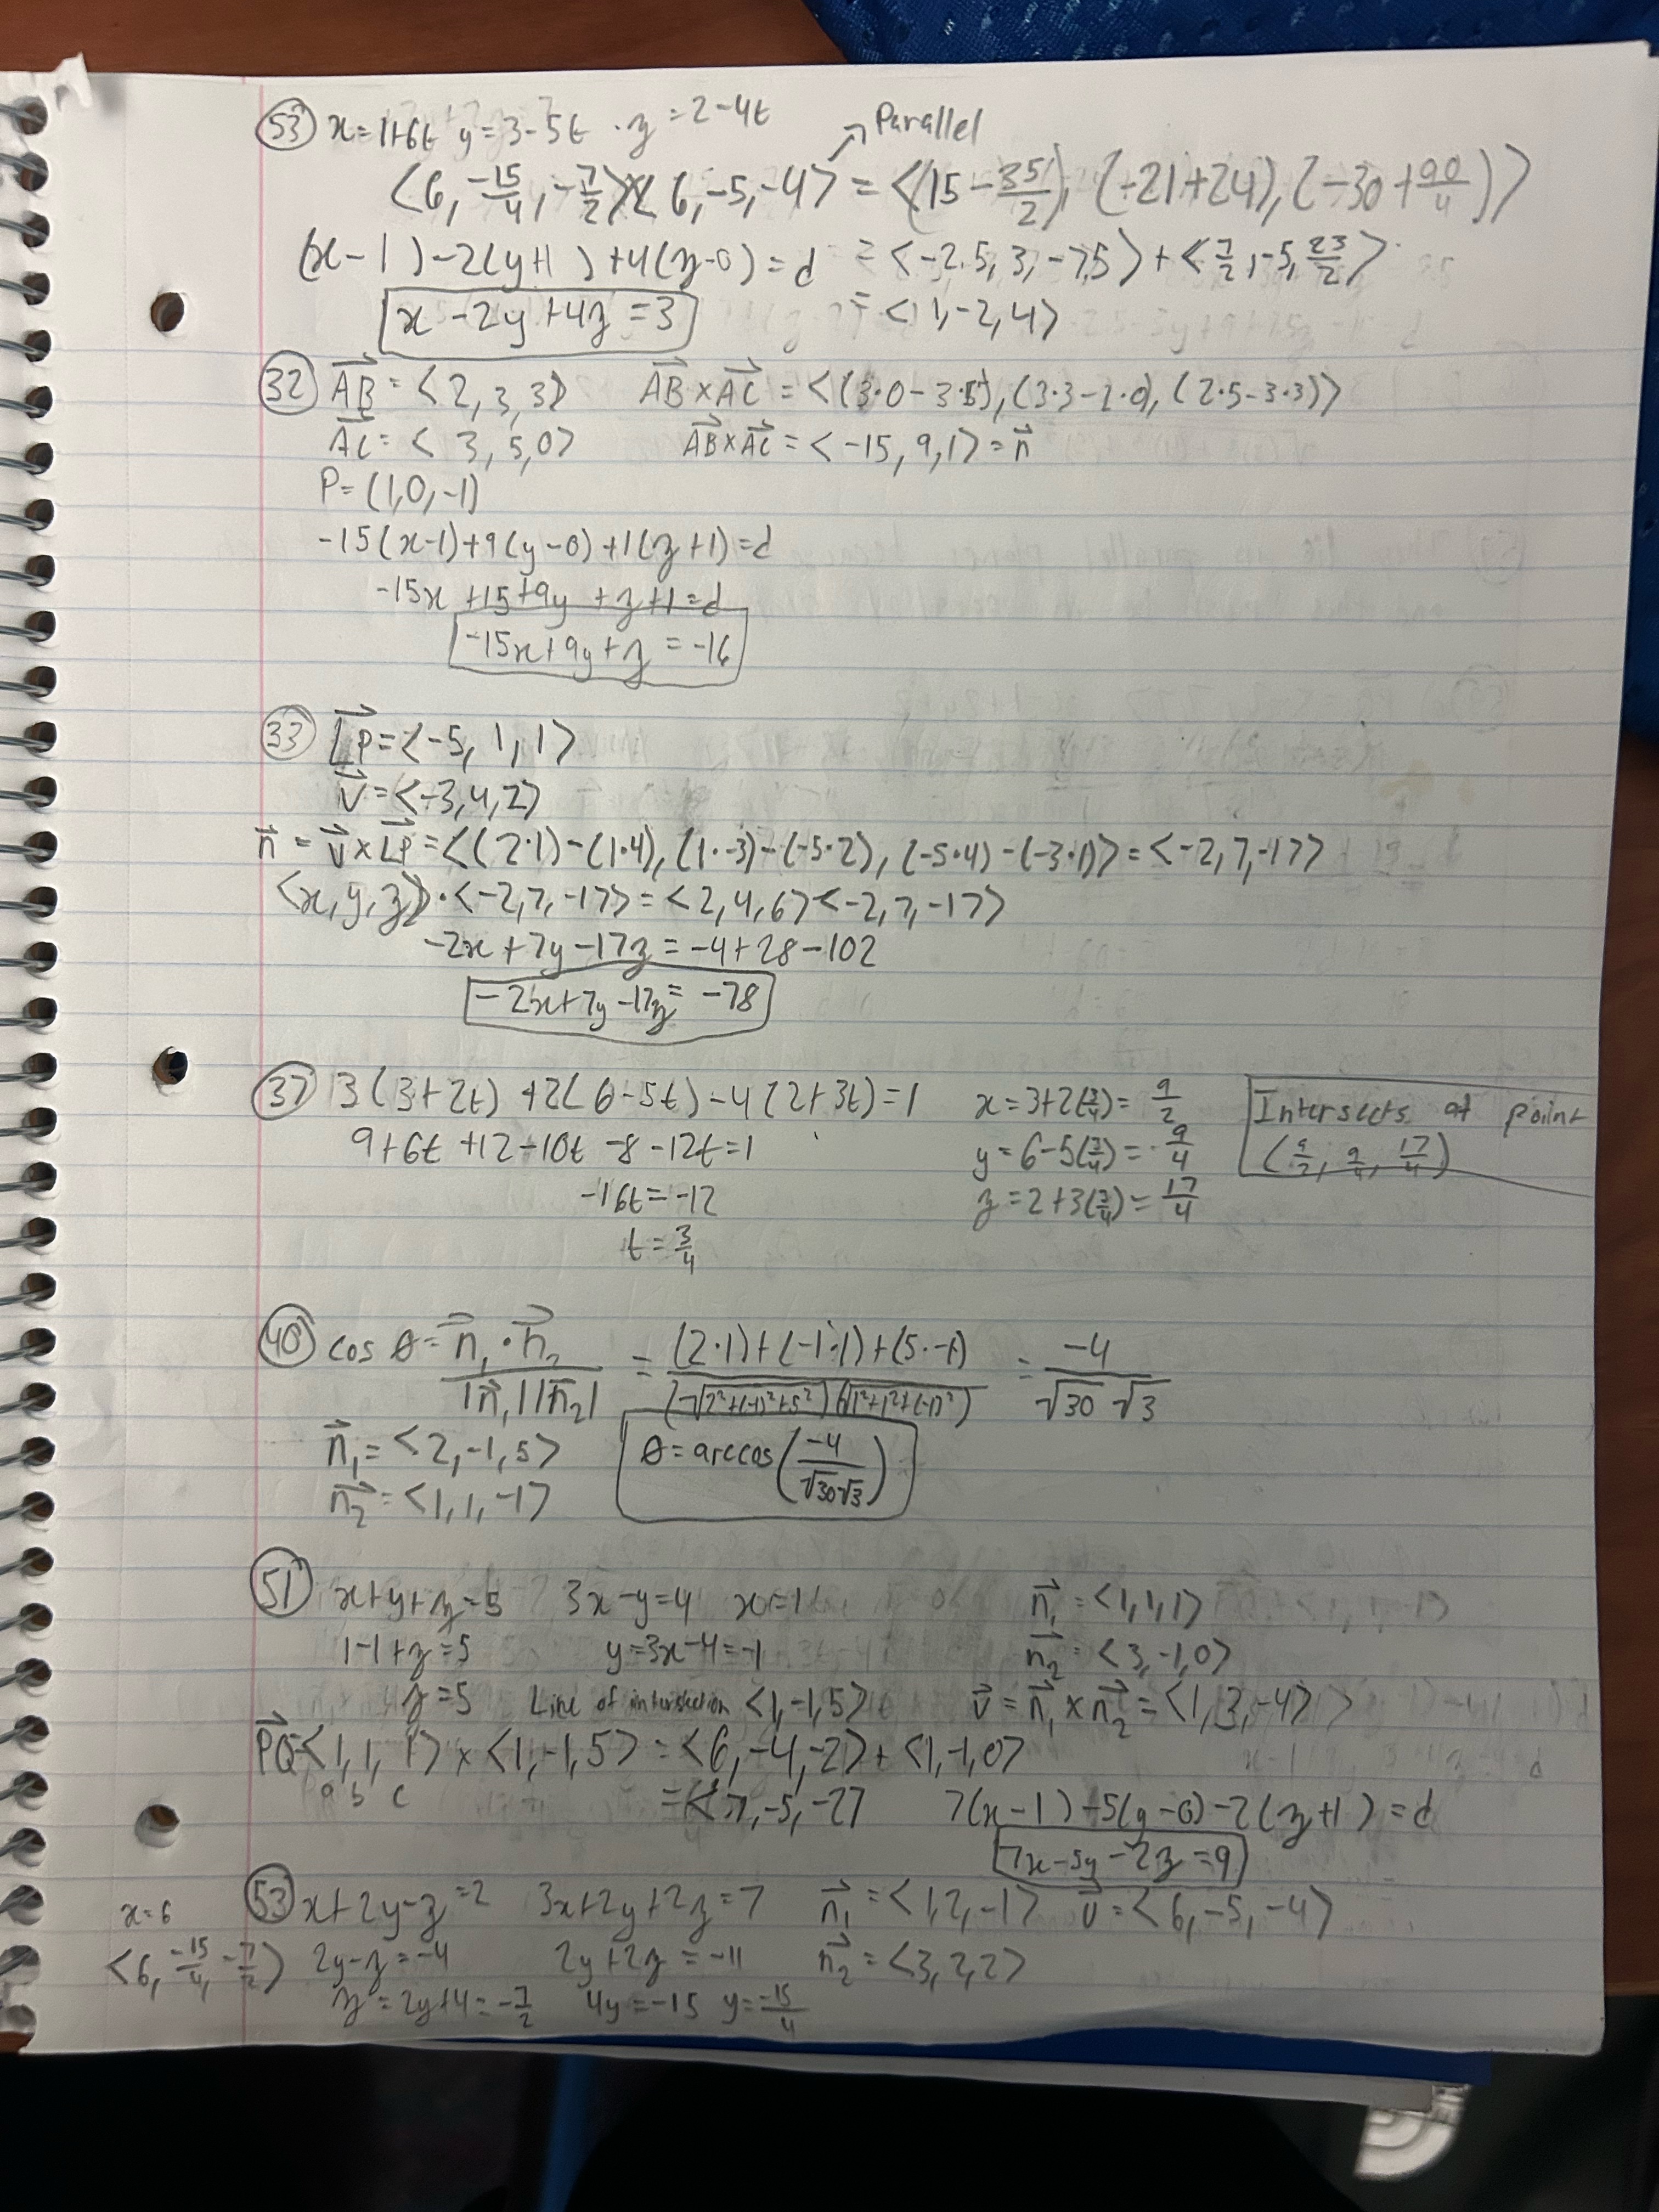 (53) x=1+6t y=3-5t · z=2-4t
↗ Parallel
<6, -15/4, -7/2> × <6, -5, -4> = <(15 - 35/2), (-21+24), (-30+90/4)>
(x-1)-2(y+1)+4(z-0)=d = <-2.5, 3, -7.5> + <7/2, -5, 23/2>
x-2y+4z=3 = <1, -2, 4>
(32) AB = <2, 3, 3> AB×AC = <(3·0-3·5), (3·3-2·0), (2·5-3·3)>
AC = <3, 5, 0> AB×AC = <-15, 9, 1> = n
P=(1,0,-1)
-15(x-1)+9(y-0)+1(z+1)=d
-15x+15+9y+z+1=d
-15x+9y+z=-16
(33) LP=<-5, 1, 1>
v=<-3, 4, 2>
n = v×LP = <(2·1)-(1·4), (1·-3)-(-5·2), (-5·4)-(-3·1)> = <-2, 7, -17>
<x, y, z>·<-2, 7, -17> = <2, 4, 6><-2, 7, -17>
-2x+7y-17z=-4+28-102
-2x+7y-17z=-78
(37) 3(3+2t)+2(6-5t)-4(2+3t)=1 x=3+2(3/4)=9/2 Intersects at point
9+6t+12-10t-8-12t=1 y=6-5(3/4)=9/4 (9/2, 9/4, 17/4)
-16t=-12 z=2+3(3/4)=17/4
t=3/4
(40) cos θ = n₁·n₂ / |n₁||n₂| = (2·1)+(-1·1)+(5·-1) / (√2²+(-1)²+5²)(√1²+1²+(-1)²) = -4 / √30 √3
n₁=<2, -1, 5> θ=arccos(-4/√30√3)
n₂=<1, 1, -1>
(51) x+y+z=5 3x-y=4 x=1 n₁=<1, 1, 1>
1-1+z=5 y=3x-4=-1 n₂=<3, -1, 0>
z=5 Line of intersection <1, -1, 5> v=n₁×n₂=<1, 3, -4>
PQ=<1, 1, 1>×<1, -1, 5>=<6, -4, -2>+<1, -1, 0>
a b c =<7, -5, -2> 7(x-1)-5(y-0)-2(z+1)=d
7x-5y-2z=9
x=6 (53) x+2y-z=2 3x+2y+2z=7 n₁=<1, 2, -1> v=<6, -5, -4>
<6, -15/4, -7/2> 2y-z=-4 2y+2z=-11 n₂=<3, 2, 2>
z=2y+4=-7/2 4y=-15 y=-15/4